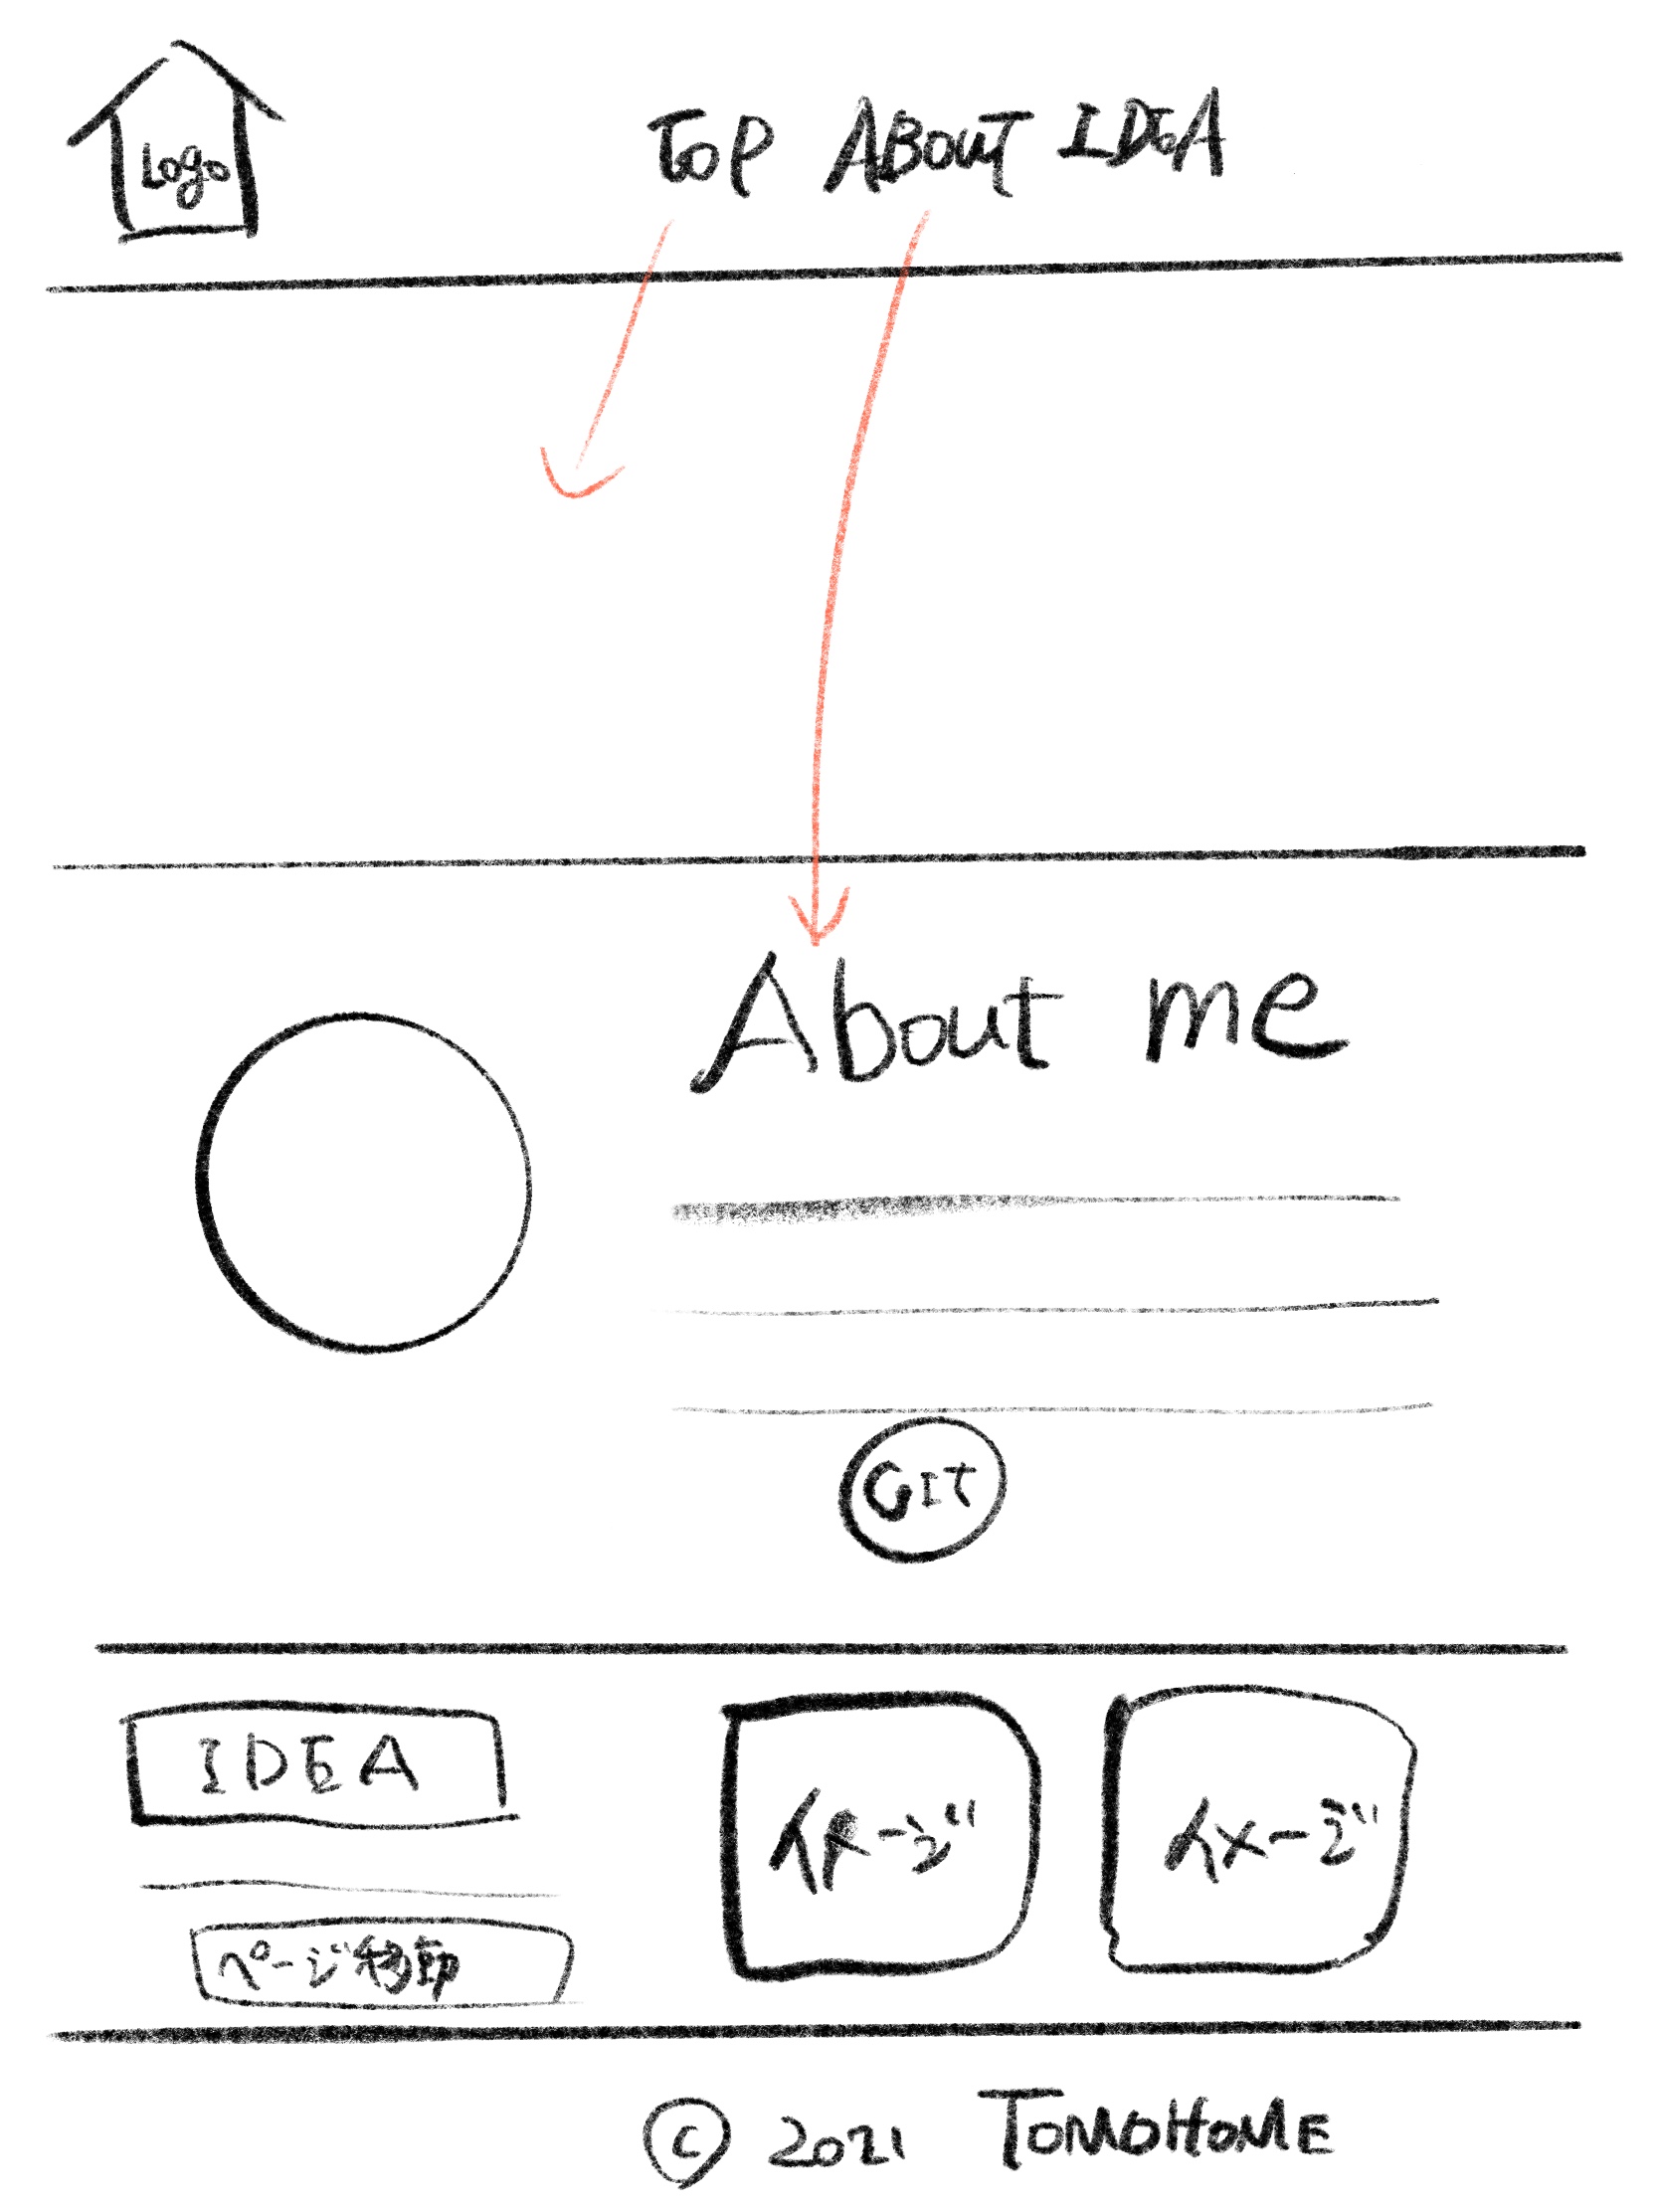 Logo
TOP ABOUT IDEA
About me
GIT
IDEA
イメージ イメージ
ページ移動
© 2021 TOMOHOME